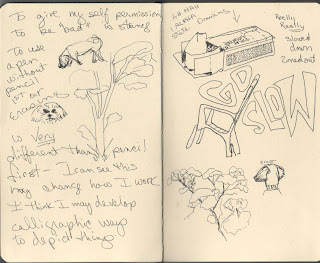 To give my self permission
To be "bad" is strange
To use
a pen
without
pencil
1st or
erasing
is Very
different than pencil
first - I can see this
may change how I work
I think I may develop
calligraphic way
to depict things
Really
Really
slowed
down
GO
SLOW